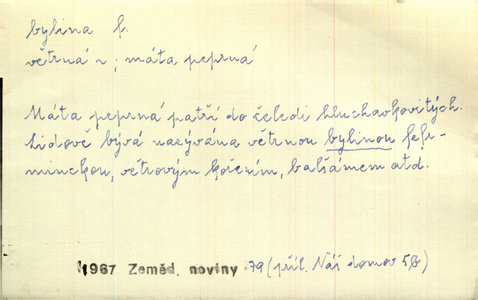 bylina f.
větrná ~; máta peprná
Máta peprná patří do čeledi hluchavkovitých.
Lidově bývá nazývána větrnou bylinou fefr-
minckou, větrovým kořením, balšámem atd.
1967 Zeměd. noviny 79 (příl. Náš domov 5β)